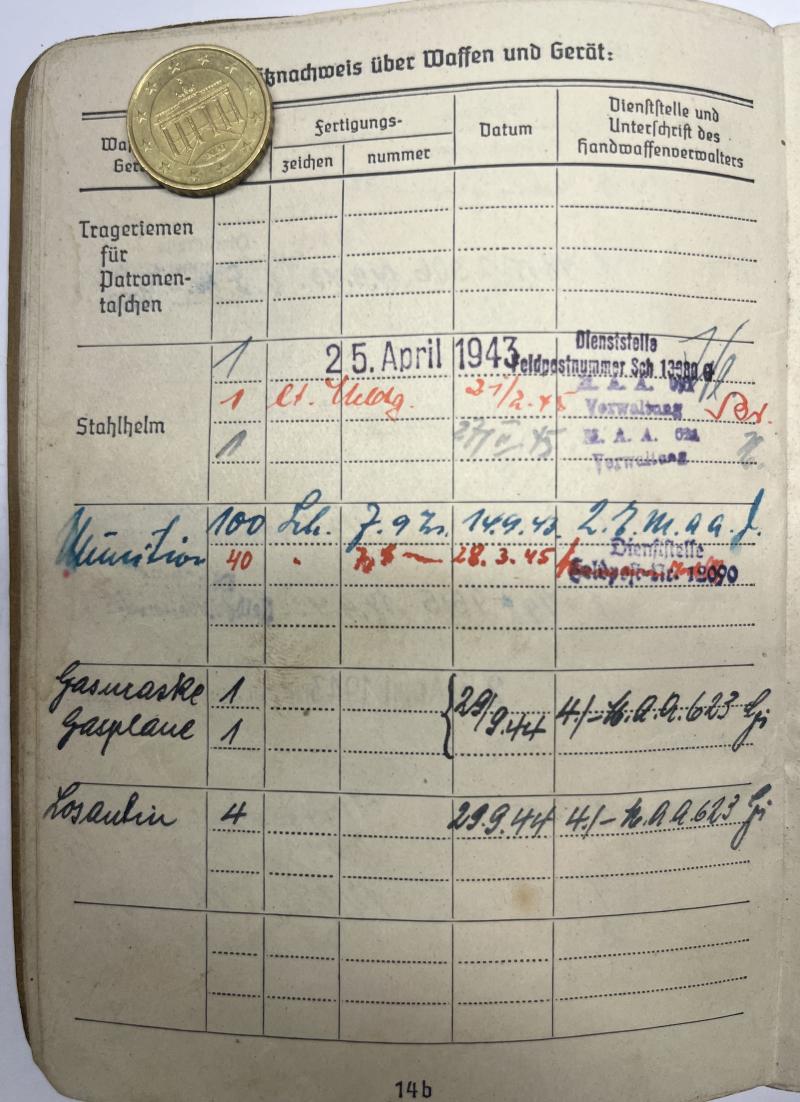 ßnachweis über Waffen und Gerät:
Fertigungs-
zeichen
nummer
Datum
Dienststelle und
Unterschrift des
Handwaffenverwalters
Trageriemen
für
Patronen-
taschen
Stahlhelm
1 25. April 1943 Dienststelle
Feldpostnummer Sch. 13980 G
1 lt. 21/2.45 M. A. A.
Verwaltung
1 45 M. A. A.
Verwaltung
Munition 100 7.9 14.9.43. 2. m.a.a.
40 28.3.45 Dienststelle
Feldpost-Nr. 12090
Gasmaske 1 29/9.44 4./- M.A.A.623
Gasplane 1
Losantin 4 29.9.44 4./- M.A.A 623
14b